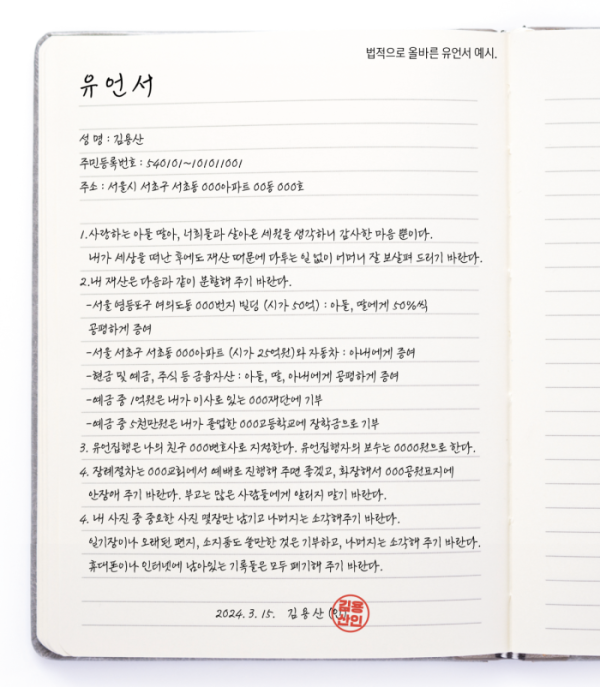 법적으로 올바른 유언서 예시.
유언서
성명 : 김용산
주민등록번호 : 540101~101011001
주소 : 서울시 서초구 서초동 000아파트 00동 000호
1.사랑하는 아들 딸아, 너희들과 살아온 세월을 생각하니 감사한 마음 뿐이다.
내가 세상을 떠난 후에도 재산 때문에 다투는 일 없이 어머니 잘 보살펴 드리기 바란다.
2.내 재산은 다음과 같이 분할해 주기 바란다.
-서울 영등포구 여의도동 000번지 빌딩 (시가 50억) : 아들, 딸에게 50%씩
공평하게 증여
-서울 서초구 서초동 000아파트 (시가 25억원)와 자동차 : 아내에게 증여
-현금 및 예금, 주식 등 금융자산 : 아들, 딸, 아내에게 공평하게 증여
-예금 중 1억원은 내가 이사로 있는 000재단에 기부
-예금 중 5천만원은 내가 졸업한 000고등학교에 장학금으로 기부
3. 유언집행은 나의 친구 000변호사로 지정한다. 유언집행자의 보수는 0000원으로 한다.
4. 장례절차는 000교회에서 예배로 진행해 주면 좋겠고, 화장해서 000공원묘지에
안장해 주기 바란다. 부고는 많은 사람들에게 알리지 말기 바란다.
4. 내 사진 중 중요한 사진 몇장만 남기고 나머지는 소각해주기 바란다.
일기장이나 오래된 편지, 소지품도 쓸만한 것은 기부하고, 나머지는 소각해 주기 바란다.
휴대폰이나 인터넷에 남아있는 기록들은 모두 폐기해 주기 바란다.
2024. 3. 15. 김용산 (인)
김용
산인